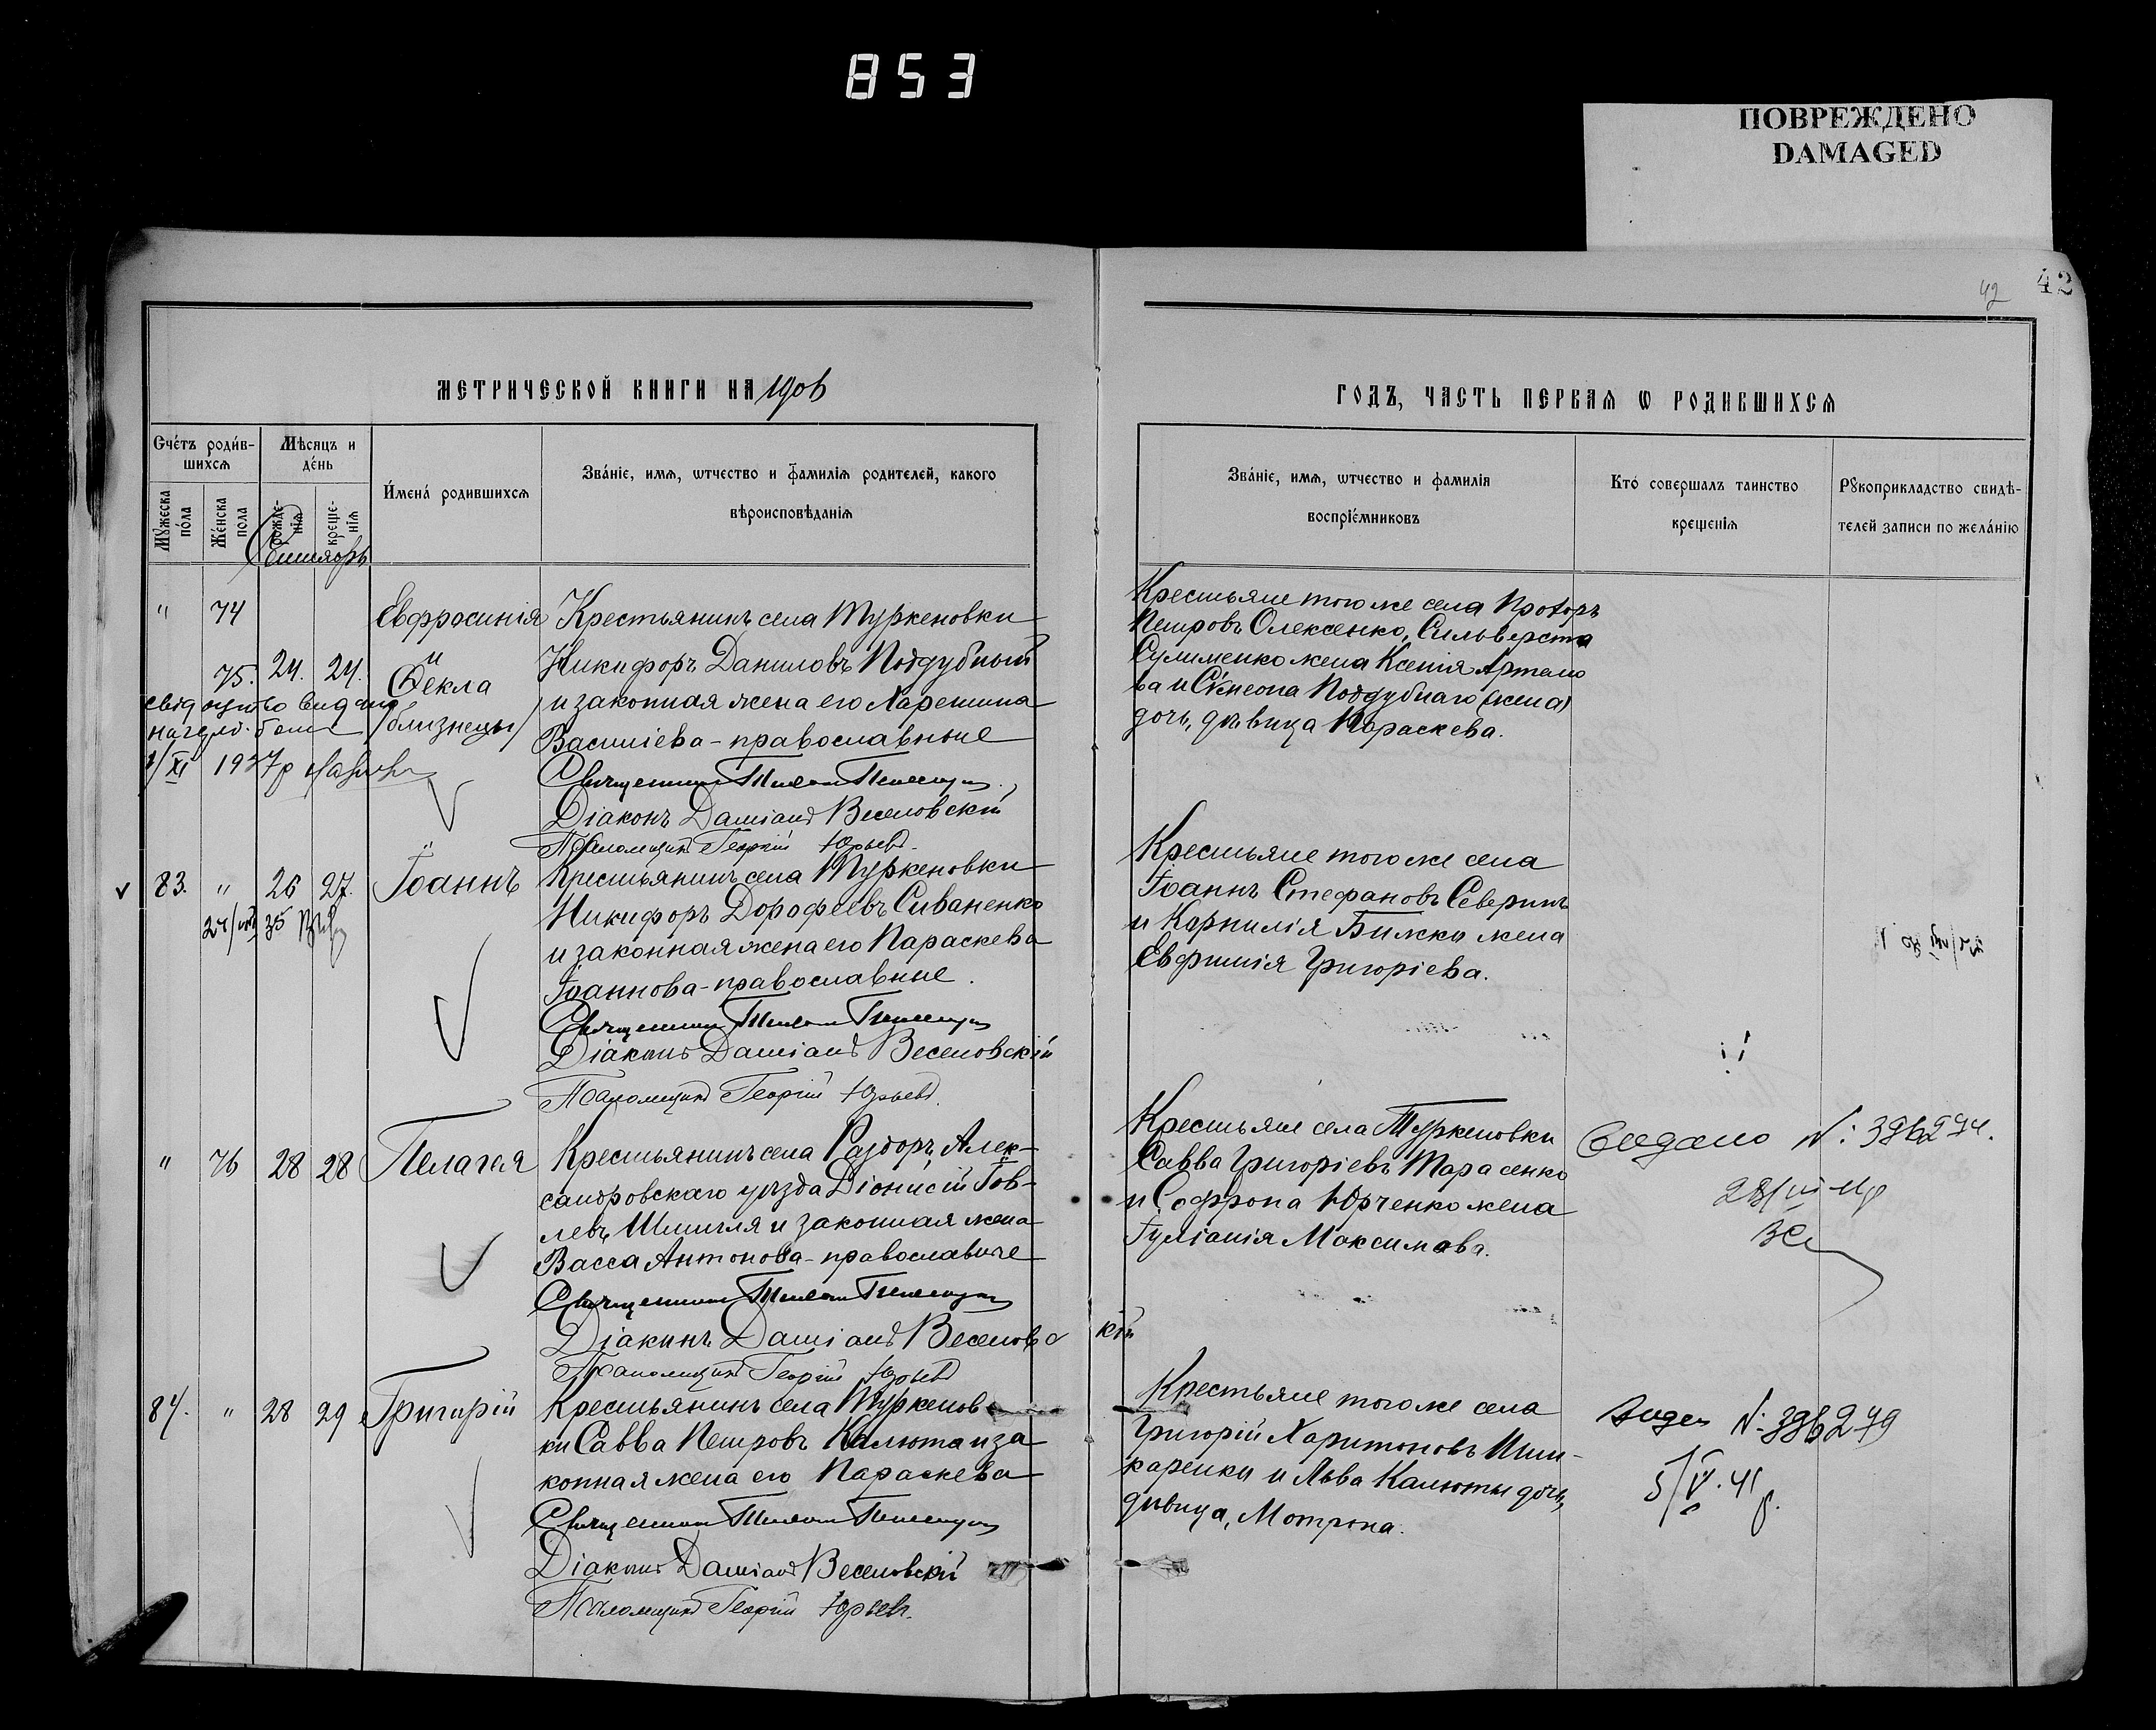 853
ПОВРЕЖДЕНО
DAMAGED
42
42
МЕТРИЧЕСКОЙ КНИГИ НА 1906
ГОДЪ, ЧАСТЬ ПЕРВАЯ Ѡ РОДИВШИХСЯ
Счéтъ роди́в-
шихсѧ
Мѣсяцъ и
де́нь
Мꙋ́жеска
по́ла
Же́нска
пола
рожде-
нія
креще-
нія
И́мена́ родившихсѧ
Зва́ніе, имѧ, ѡтчество и фамилія родителей, какого
вѣроисповѣданія
Зва́ніе, имѧ, ѡтчество и фамилія
воспріе́мниковъ
Кто́ совершалъ таинство
крещенія
Рꙋкоприкладство свидѣ-
телей записи по жела́нію
"
74
Евфросинія
и
75.
24.
24.
Ѳекла
/близнецы/
Крестьянинъ села Туркеновки
Никифоръ Даниловъ Поддубный
и законная жена его Харитина
Василіева - православные
Діаконъ Даміанъ Веселовскій
Псаломщикъ Георгій Юрьевъ.
Крестьяне того же села Прохоръ
Петровъ Олексенко, Сильверста
Сулименко жена Ксенія Артемо
ва и Сѵмеона Поддубнаго (жена)
дочь, дѣвица Параскева.
1927р
83.
"
26
27.
Іоаннъ
Крестьянинъ села Туркеновки
Никифоръ Дорофеевъ Сиваненко
и законная жена его Параскева
Іоаннова - православные.
Діаконъ Даміанъ Веселовскій
Псаломщикъ Георгій Юрьевъ.
Крестьяне того же села
Іоаннъ Стефановъ Северинъ
и Корнилія Билжки жена
Евфимія Григоріева.
"
76
28
28
Пелагея
Крестьянинъ села Раздоръ, Алек-
сандровскаго уѣзда Діонисій Іов-
левъ Шмигля и законная жена
Васса Антонова - православные
Діаконъ Даміанъ Веселовскій
Псаломщикъ Георгій Юрьевъ
Крестьяне села Туркеновки
Савва Григоріевъ Тарасенко
и Софрона Юрченко жена
Іуліанія Максимова.
84.
"
28
29
Григорій
Крестьянинъ села Туркенов
ки Савва Петровъ Калюта и за
конная жена его Параскева
Діаконъ Даміанъ Веселовскій
Псаломщикъ Георгій Юрьевъ.
Крестьяне того же села
Григорій Харитоновъ Шин-
каренки и Льва Калюты дочь,
дѣвица, Мотрона.
5/V.41